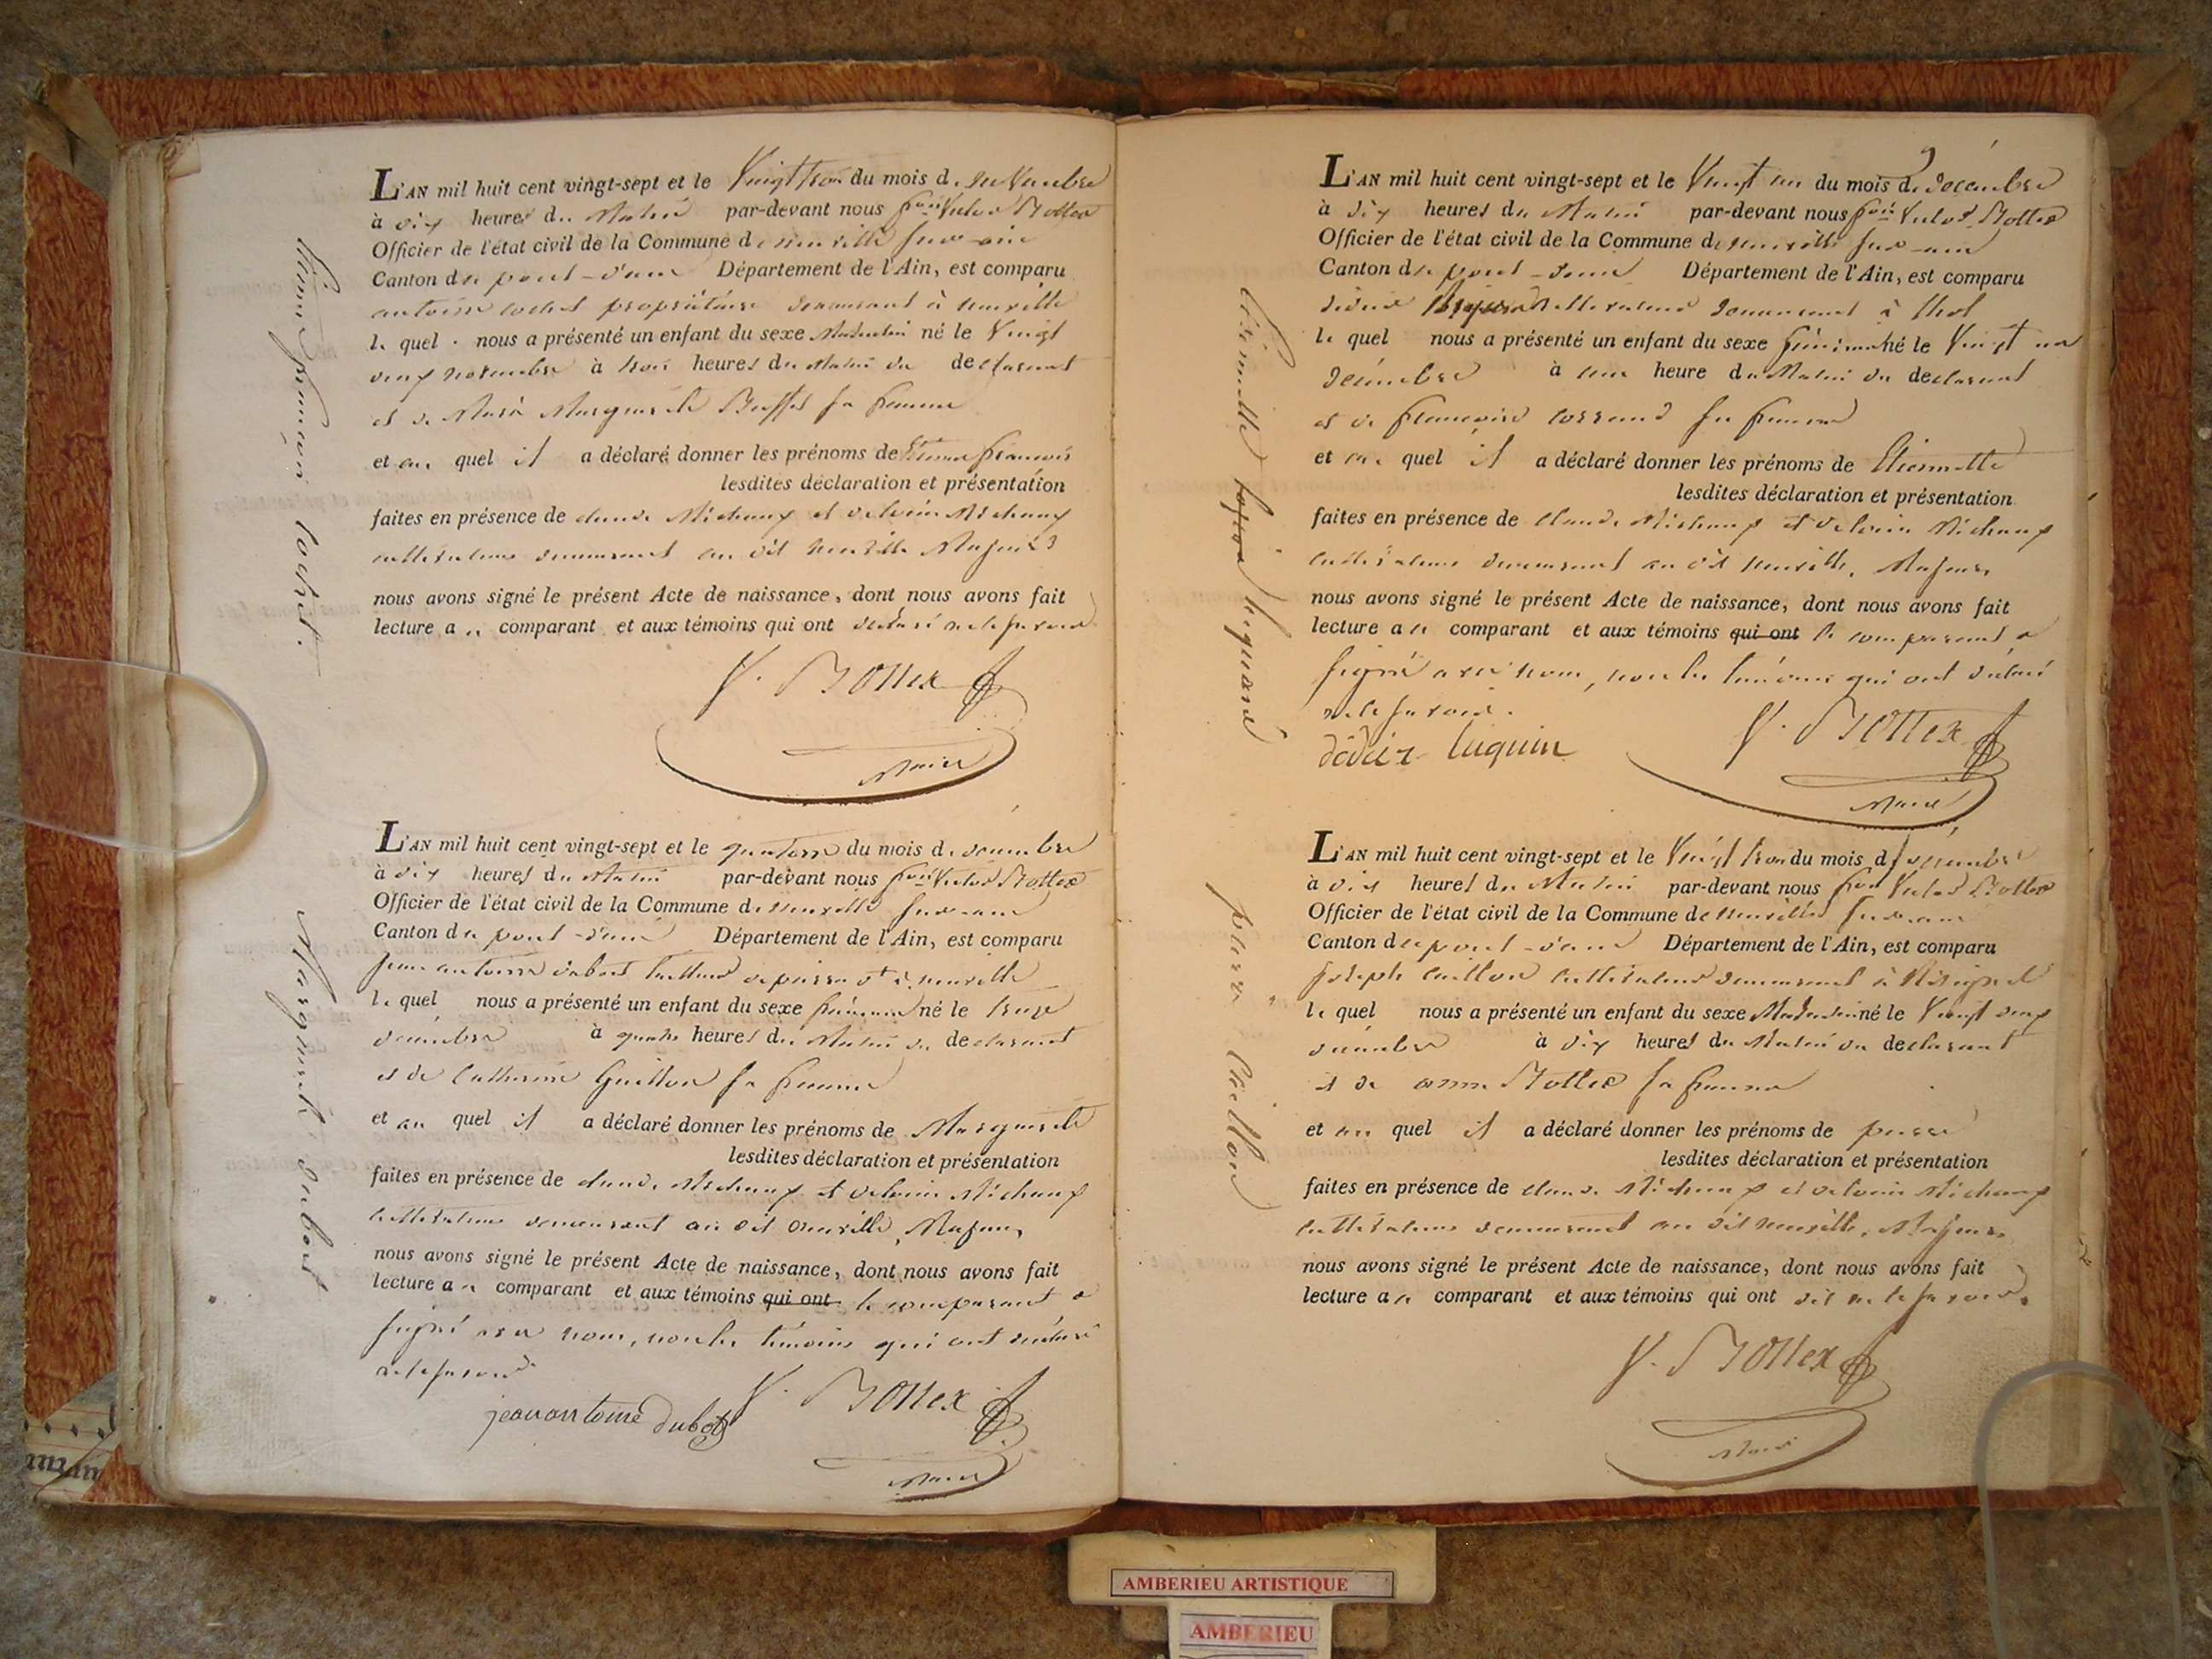 L'AN mil huit cent vingt-sept et le Vingt trois du mois de novembre
à dix heures du Matin par-devant nous fois Victor Bottex
Officier de l'état civil de la Commune de neuville sur-ain
Canton du pont-d'ain Département de l'Ain, est comparu
antoine cochet propriétaire demeurant à neuville
le quel nous a présenté un enfant du sexe Masculin né le Vingt
deux novembre à trois heures du Matin du declarant
et de Marguerite Buffet sa femme
et au quel il a déclaré donner les prénoms de Etienne francois
lesdites déclaration et présentation
faites en présence de claude Michaux et Michaux
cultivateurs demeurant au dit neuville Majeurs
nous avons signé le présent Acte de naissance, dont nous avons fait
lecture au comparant et aux témoins qui ont déclaré ne le savoir
V. Bottex
Maire
Etienne francois cochet.
L'AN mil huit cent vingt-sept et le quatorze du mois de décembre
à dix heures du Matin par-devant nous fois Victor Bottex
Officier de l'état civil de la Commune de neuville sur-ain
Canton du pont-d'ain Département de l'Ain, est comparu
jean antoine dubost neuville
le quel nous a présenté un enfant du sexe féminin né le treize
décembre à quatre heures du Matin du declarant
et de Catherine Guillon sa femme
et au quel il a déclaré donner les prénoms de Marguerite
lesdites déclaration et présentation
faites en présence de claude Michaux et Michaux
cultivateurs demeurant au dit neuville, Majeurs
nous avons signé le présent Acte de naissance, dont nous avons fait
lecture au comparant et aux témoins qui ont le comparant a
signé avec nous, non les témoins qui ont déclaré
ne le savoir
jean antoine dubost V. Bottex
Maire
Marguerite dubost
L'AN mil huit cent vingt-sept et le Vingt un du mois de décembre
à dix heures du Matin par-devant nous fois Victor Bottex
Officier de l'état civil de la Commune de neuville sur-ain
Canton du pont-d'ain Département de l'Ain, est comparu
cultivateur demeurant à thol
le quel nous a présenté un enfant du sexe féminin né le Vingt un
décembre à une heure du Matin du declarant
et de francoise sa femme
et au quel il a déclaré donner les prénoms de Etiennette
lesdites déclaration et présentation
faites en présence de Claude Michaux et Michaux
cultivateurs demeurant au dit neuville, Majeurs
nous avons signé le présent Acte de naissance, dont nous avons fait
lecture au comparant et aux témoins qui ont le comparant a
signé avec nous, non les témoins qui ont déclaré
ne le savoir.
luquin V. Bottex
Maire
Etiennette
L'AN mil huit cent vingt-sept et le Vingt trois du mois d décembre
à dix heures du Matin par-devant nous fois Victor Bottex
Officier de l'état civil de la Commune de neuville sur-ain
Canton du pont-d'ain Département de l'Ain, est comparu
joseph caillon cultivateur demeurant à
le quel nous a présenté un enfant du sexe Masculin né le Vingt deux
décembre à dix heures du Matin du declarant
et de anne Bottex sa femme
et au quel il a déclaré donner les prénoms de pierre
lesdites déclaration et présentation
faites en présence de claude Michaux et Michaux
cultivateurs demeurant au dit neuville, Majeurs
nous avons signé le présent Acte de naissance, dont nous avons fait
lecture au comparant et aux témoins qui ont dit ne le savoir.
V. Bottex
Maire
pierre Caillon
AMBERIEU ARTISTIQUE
AMBERIEU